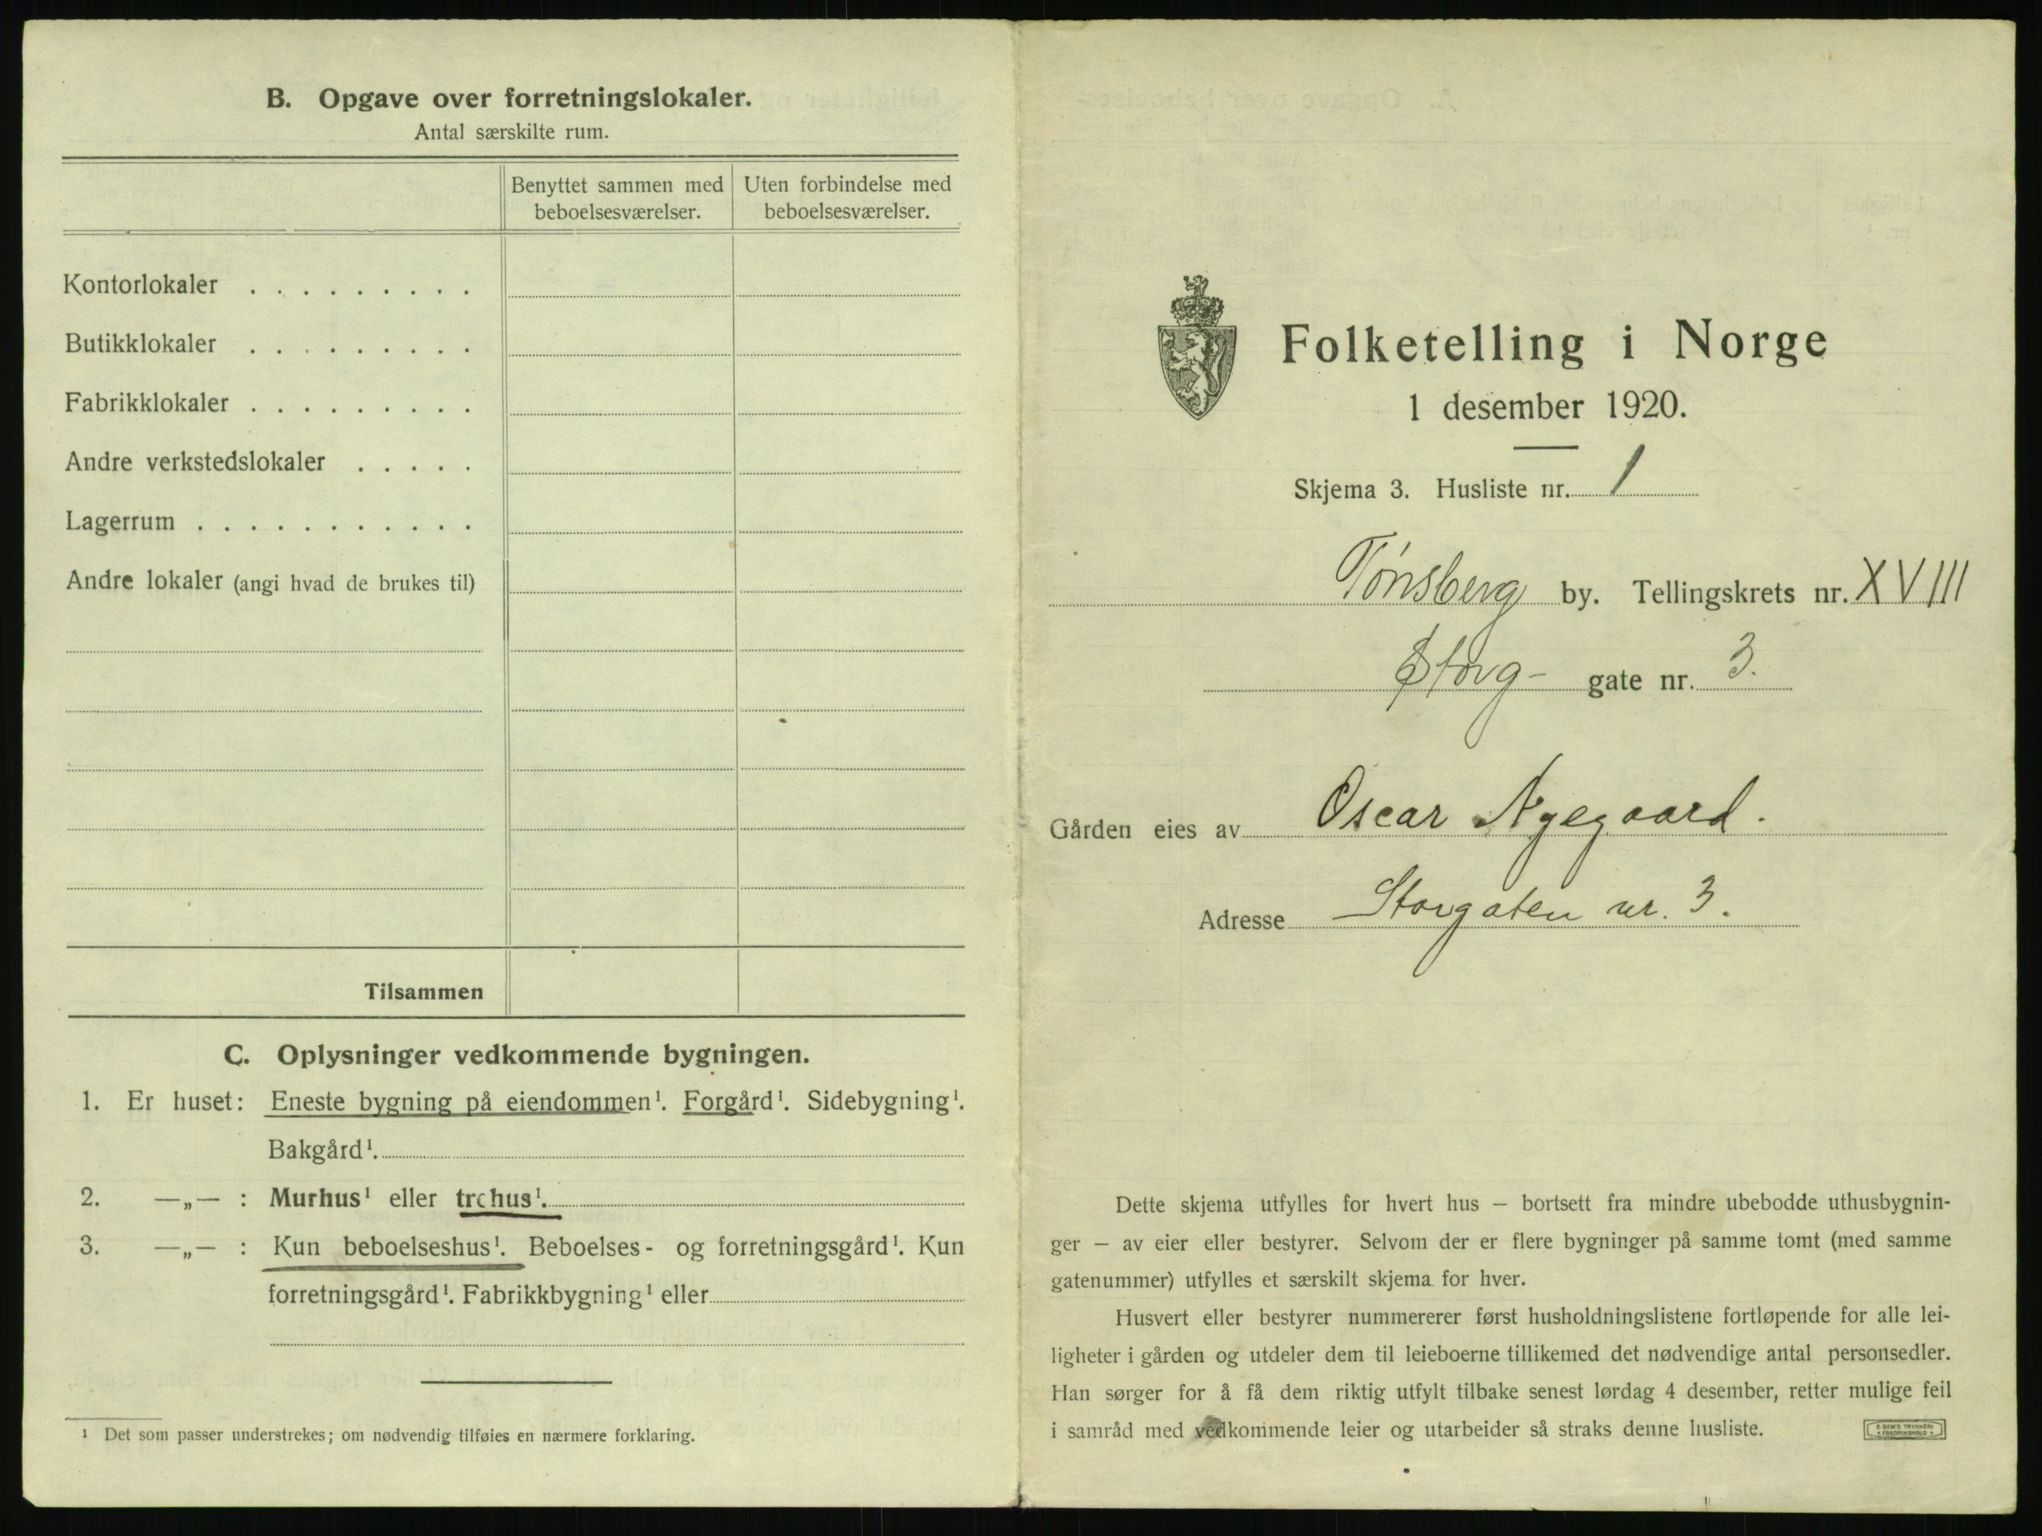 B. Opgave over forretningslokaler.
Antal særskilte rum.
Benyttet sammen med beboelsesværelser.
Uten forbindelse med beboelsesværelser.
Kontorlokaler . . . . . . . . .
Butikklokaler . . . . . . . . .
Fabrikklokaler . . . . . . . . .
Andre verkstedslokaler . . . . .
Lagerrum . . . . . . . . . . .
Andre lokaler (angi hvad de brukes til)
Tilsammen
C. Oplysninger vedkommende bygningen.
1. Er huset: Eneste bygning på eiendommen¹. Forgård¹. Sidebygning¹.
Bakgård¹.
2. —„— : Murhus¹ eller trehus¹.
3. —„— : Kun beboelseshus¹. Beboelses- og forretningsgård¹. Kun
forretningsgård¹. Fabrikkbygning¹ eller
¹ Det som passer understrekes; om nødvendig tilføies en nærmere forklaring.
Folketelling i Norge
1 desember 1920.
Skjema 3. Husliste nr. 1
Tønsberg by. Tellingskrets nr. XVIII
Storg- gate nr. 3.
Gården eies av Oscar Nyegaard.
Adresse Storgaten nr. 3.
Dette skjema utfylles for hvert hus – bortsett fra mindre ubebodde uthusbygnin-
ger – av eier eller bestyrer. Selvom der er flere bygninger på samme tomt (med samme
gatenummer) utfylles et særskilt skjema for hver.
Husvert eller bestyrer nummererer først husholdningslistene fortløpende for alle lei-
ligheter i gården og utdeler dem til leieboerne tillikemed det nødvendige antal personsedler.
Han sørger for å få dem riktig utfylt tilbake senest lørdag 4 desember, retter mulige feil
i samråd med vedkommende leier og utarbeider så straks denne husliste.
E. SEM'S TRYKKERI
• FREDRIKSHALD •